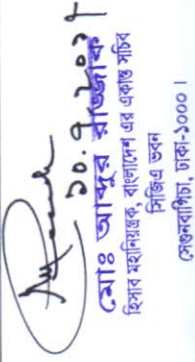 ১০.৭.২০১৭
মোঃ আব্দুর রাজ্জাক
হিসাব মহানিয়ন্ত্রক, বাংলাদেশ এর একান্ত সচিব
সিজিএ ভবন
সেগুনবাগিচা, ঢাকা-১০০০।